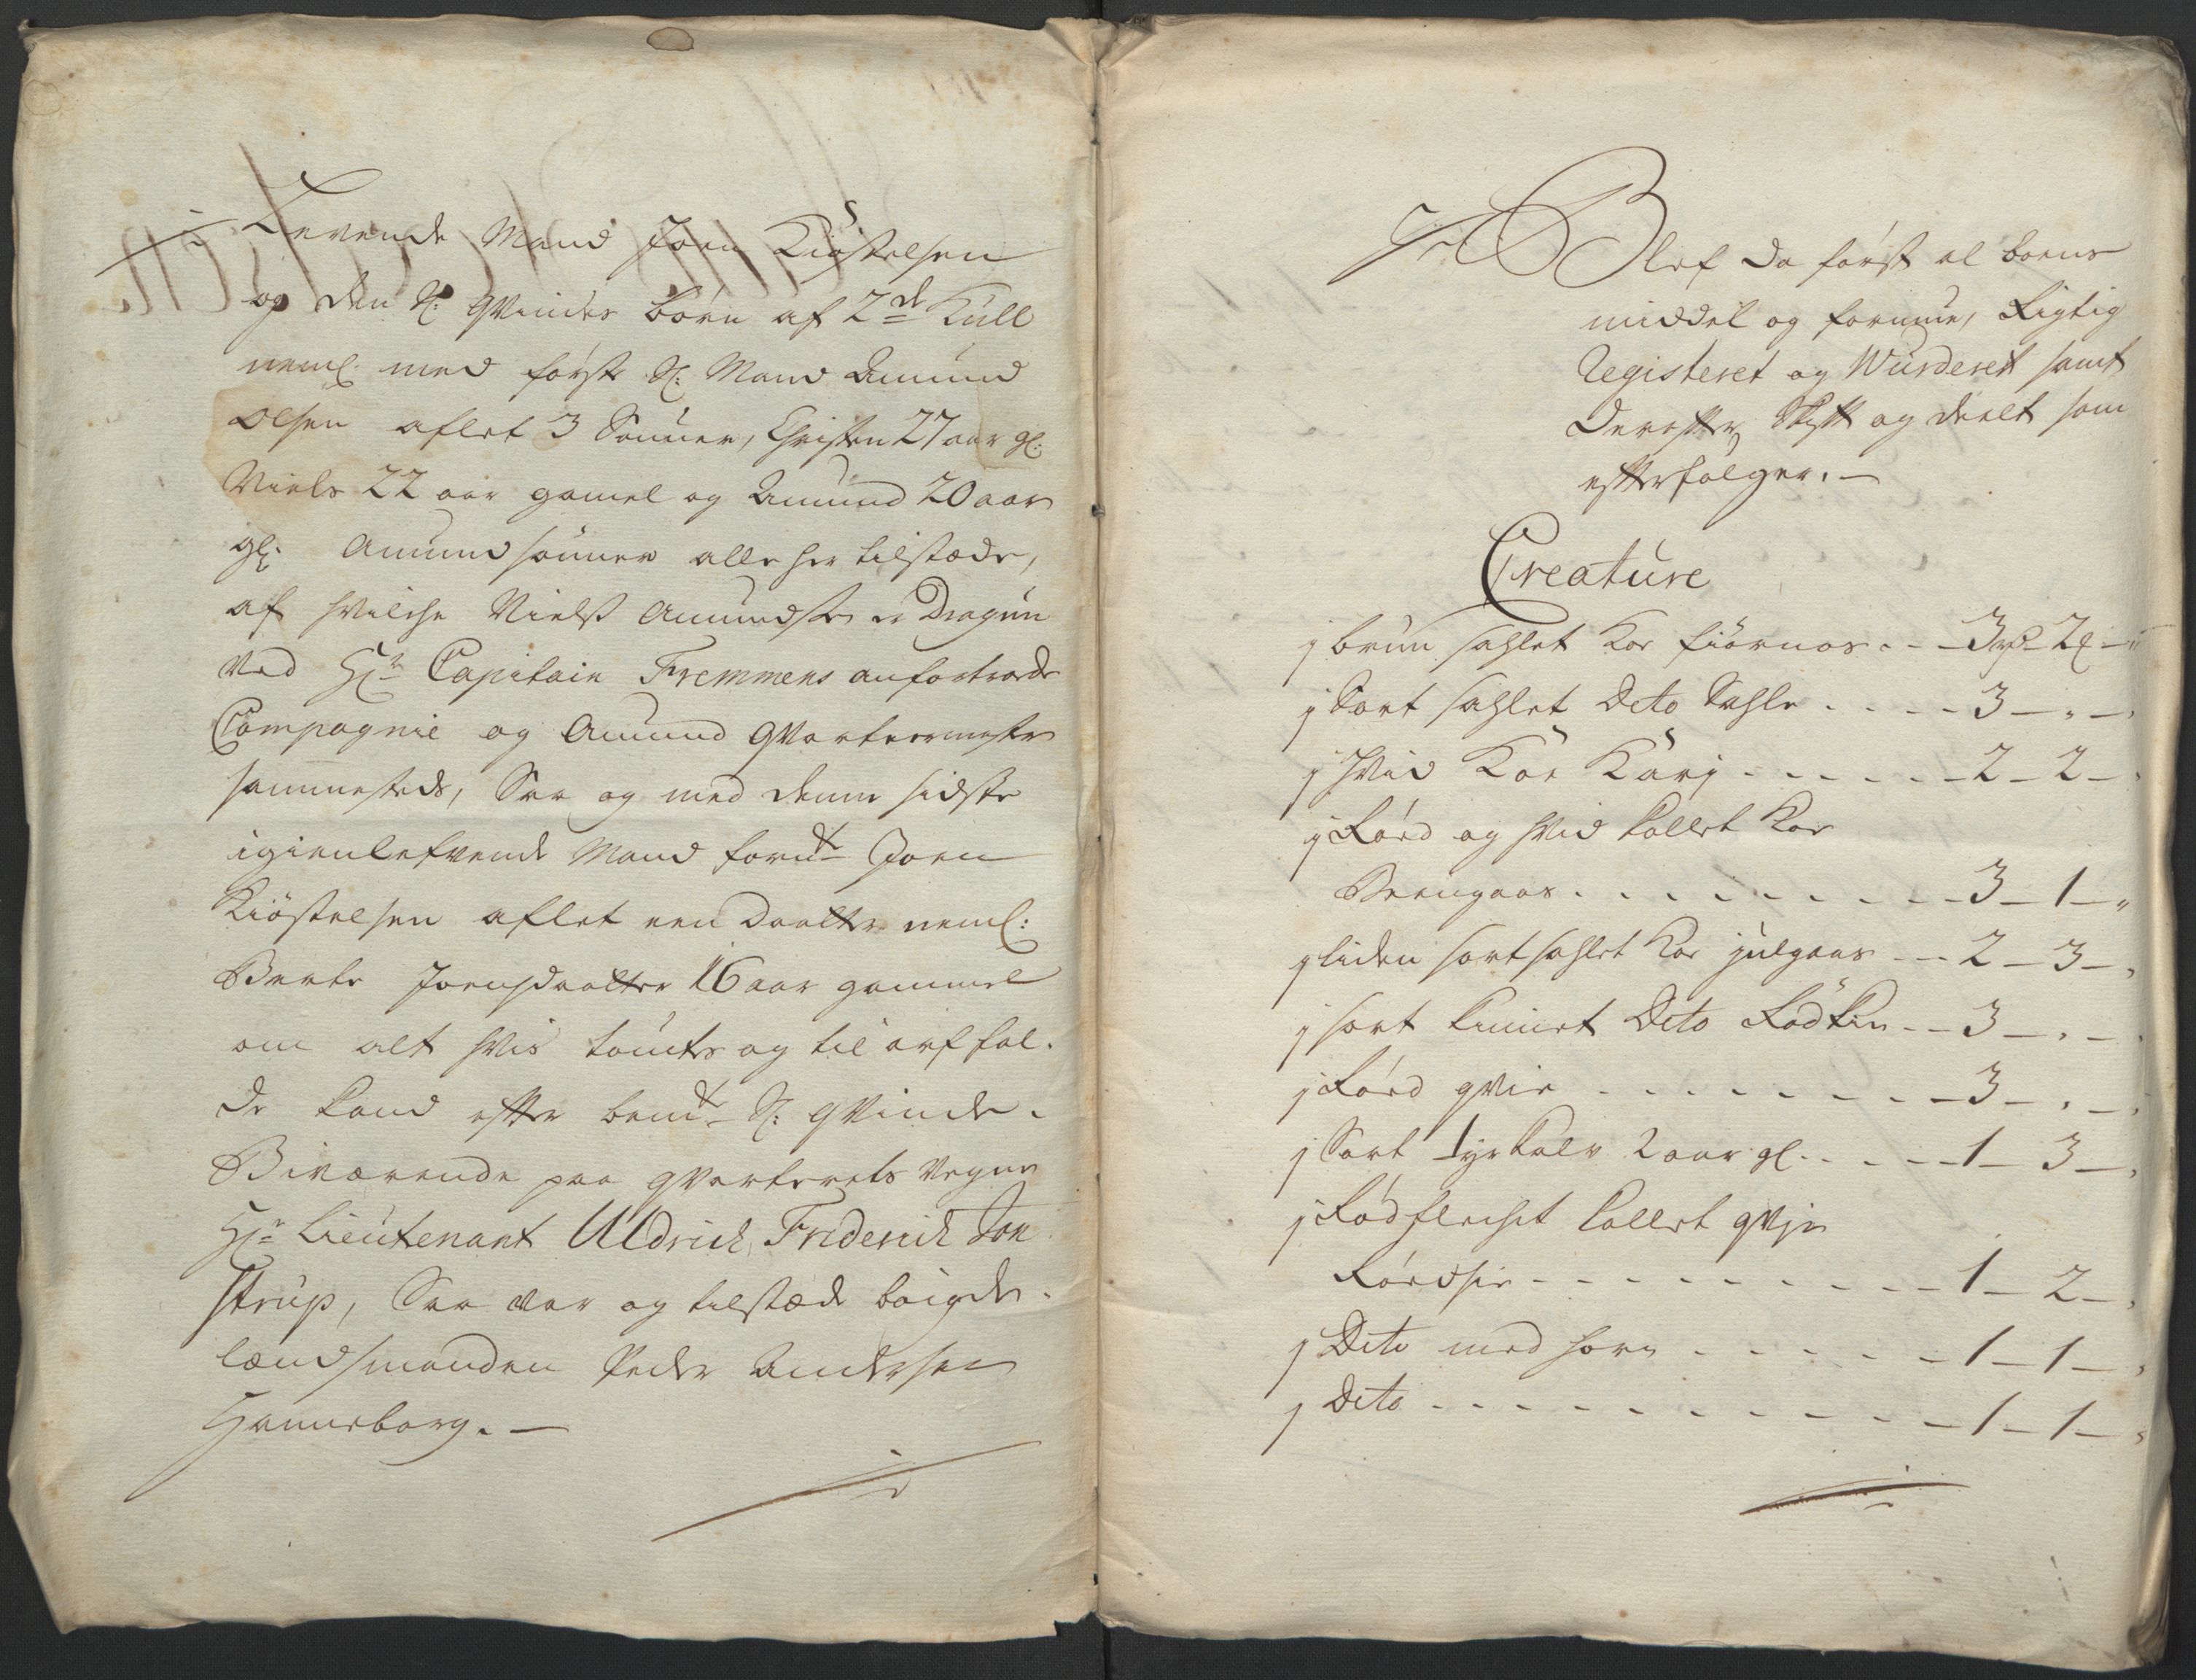 Levende Mand Joen Kiöstelsen
og den Sl: Qvindes börn af 2de Kull
neml. med förste Sl: Mand Amund
Olsen aflet 3 Sönner, Christen 27 aar gl:
Niels 22 aar gamel og Amund 20 aar
gl. Amundsönner alle her tilstæde,
af hvilche Niels Amundsen er Dragun
ved Hr Capitain Fremmens anfortroede
Compagnie og Amund Qvarteermester
sammesteds, Saa og med denne sidste
igienlefvende Mand fornt Joen
Kiöstelsen aflet een Daatter neml:
Berte Joensdaatter 16 aar gammel
om alt hvis Löst og til arf fal-
de kand efter bemt Sl: Qvinde.
Biværende paa qvarterets vegne
Hr Lieutenant Uldrich Friderich Ton
strup, Saa var og tilstæde böigde-
lændsmanden Peder Andersen
Hanneborg. —
Blef da först al boens
middel og formue, Rigtig
Registeret og Wurderet samt
derefter Skift og deelt som
efterfölger. —
Creature
j brun sahlet Koe fiörnos . - - 3 rd - 2 - "
j Sort sahlet Dito Sahle . . . . 3 - " - "
j hvid Koe Kari - . . . . . 2 - 2 -
j Röed og hvid kollet Koe
Brengaas . . . . . . . . . 3 - 1 - "
j liden sort sahlet Koe julgaas - - 2 - 3 - "
j sort kinnet Dito Rödkin - - 3 - " -
j Röed qvie . . . . . . . 3 - " - "
j Sort Tyrkalv 2 aar gl. . . . . 1 - 3 - "
j Röd flechet kollet qvie
Röedsie - - - - - - - - - 1 - 2 - "
j Dito med horn . . . . . 1 - 1 - "
j Dito - - - - - - - - - - 1 - 1 - "